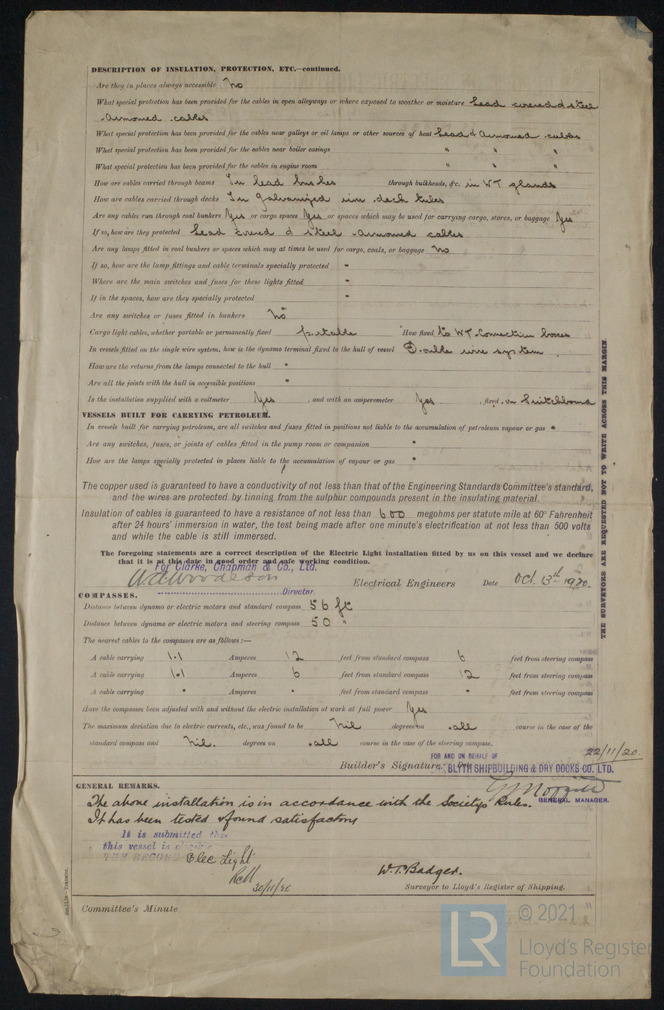 DESCRIPTION OF INSULATION, PROTECTION, ETC.—continued.
Are they in places always accessible No
What special protection has been provided for the cables in open alleyways or where exposed to weather or moisture Lead covered & steel
Armoured cables
What special protection has been provided for the cables near galleys or oil lamps or other sources of heat Lead & Armoured cables
What special protection has been provided for the cables near boiler casings " " "
What special protection has been provided for the cables in engine room " " "
How are cables carried through beams In lead bushes through bulkheads, &c. in WT glands
How are cables carried through decks In Galvanized iron deck tubes
Are any cables run through coal bunkers Yes or cargo spaces Yes or spaces which may be used for carrying cargo, stores, or baggage Yes
If so, how are they protected Lead covered & steel Armoured cables
Are any lamps fitted in coal bunkers or spaces which may at times be used for cargo, coals, or baggage No
If so, how are the lamp fittings and cable terminals specially protected -
Where are the main switches and fuses for these lights fitted -
If in the spaces, how are they specially protected -
Are any switches or fuses fitted in bunkers No
Cargo light cables, whether portable or permanently fixed portable How fixed to WT Connection boxes
In vessels fitted on the single wire system, how is the dynamo terminal fixed to the hull of vessel Double wire system.
How are the returns from the lamps connected to the hull "
Are all the joints with the hull in accessible positions "
Is the installation supplied with a voltmeter Yes, and with an amperemeter Yes, fixed on Switchboard
VESSELS BUILT FOR CARRYING PETROLEUM.
In vessels built for carrying petroleum, are all switches and fuses fitted in positions not liable to the accumulation of petroleum vapour or gas "
Are any switches, fuses, or joints of cables fitted in the pump room or companion "
How are the lamps specially protected in places liable to the accumulation of vapour or gas "
The copper used is guaranteed to have a conductivity of not less than that of the Engineering Standards Committee's standard,
and the wires are protected by tinning from the sulphur compounds present in the insulating material.
Insulation of cables is guaranteed to have a resistance of not less than 600 megohms per statute mile at 60° Fahrenheit
after 24 hours' immersion in water, the test being made after one minute's electrification at not less than 500 volts
and while the cable is still immersed.
The foregoing statements are a correct description of the Electric Light installation fitted by us on this vessel and we declare
that it is at this date in good order and safe working condition.
For Clarke, Chapman & Co., Ltd.
Electrical Engineers Date Oct. 13th 1920.
Director.
COMPASSES.
Distance between dynamo or electric motors and standard compass 56 ft
Distance between dynamo or electric motors and steering compass 50 "
The nearest cables to the compasses are as follows:—
A cable carrying 1.1 Amperes 12 feet from standard compass 6 feet from steering compass
A cable carrying 1.1 Amperes 6 feet from standard compass 12 feet from steering compass
A cable carrying " Amperes " feet from standard compass " feet from steering compass
Have the compasses been adjusted with and without the electric installation at work at full power Yes
The maximum deviation due to electric currents, etc., was found to be Nil degrees on all course in the case of the
standard compass and Nil. degrees on all course in the case of the steering compass.
22/11/20.
FOR AND ON BEHALF OF
Builder's Signature.
BLYTH SHIPBUILDING & DRY DOCKS CO. LTD.
GENERAL MANAGER.
GENERAL REMARKS.
The above installation is in accordance with the Society's Rules.
It has been tested & found satisfactory
It is submitted that
this vessel is eligible
THE RECORD Elec Light
30/11/20
W.T. Badger.
Surveyor to Lloyd's Register of Shipping.
Committee's Minute
THE SURVEYORS ARE REQUESTED NOT TO WRITE ACROSS THIS MARGIN
LR
© 2021
Lloyd's Register
Foundation